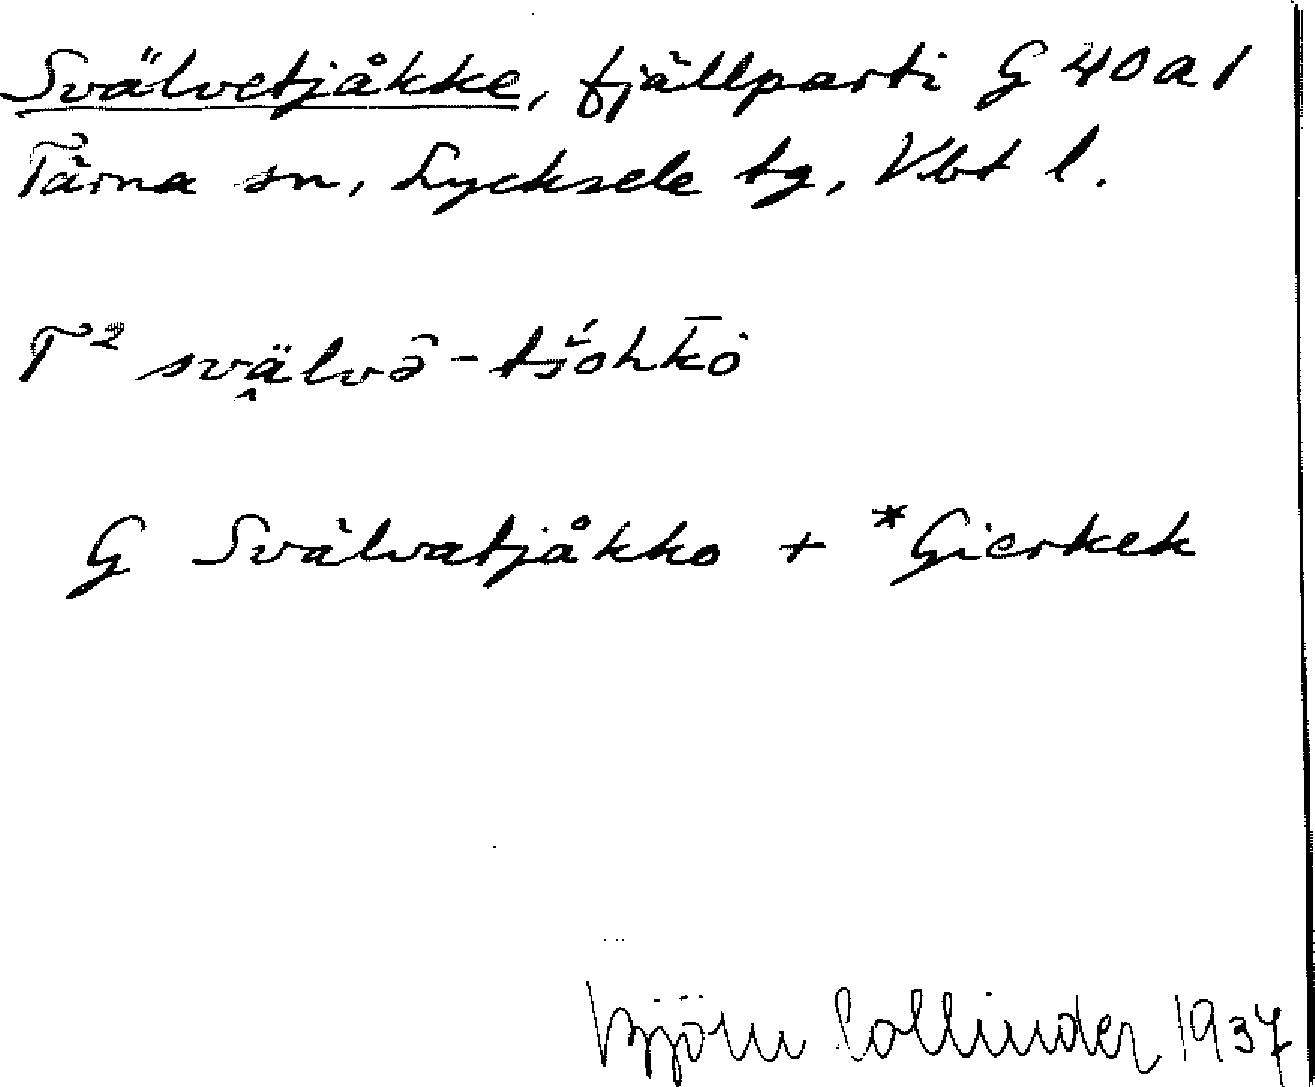 Svälvetjåkke, fjällparti G 40 a 1
Tärna sn, Lycksele tg, Vbt l.
T² svä̭lvə̑ - tš́ohk̄ò
G Svälvatjåkko + *Gierkek
Björn Collinder 1937